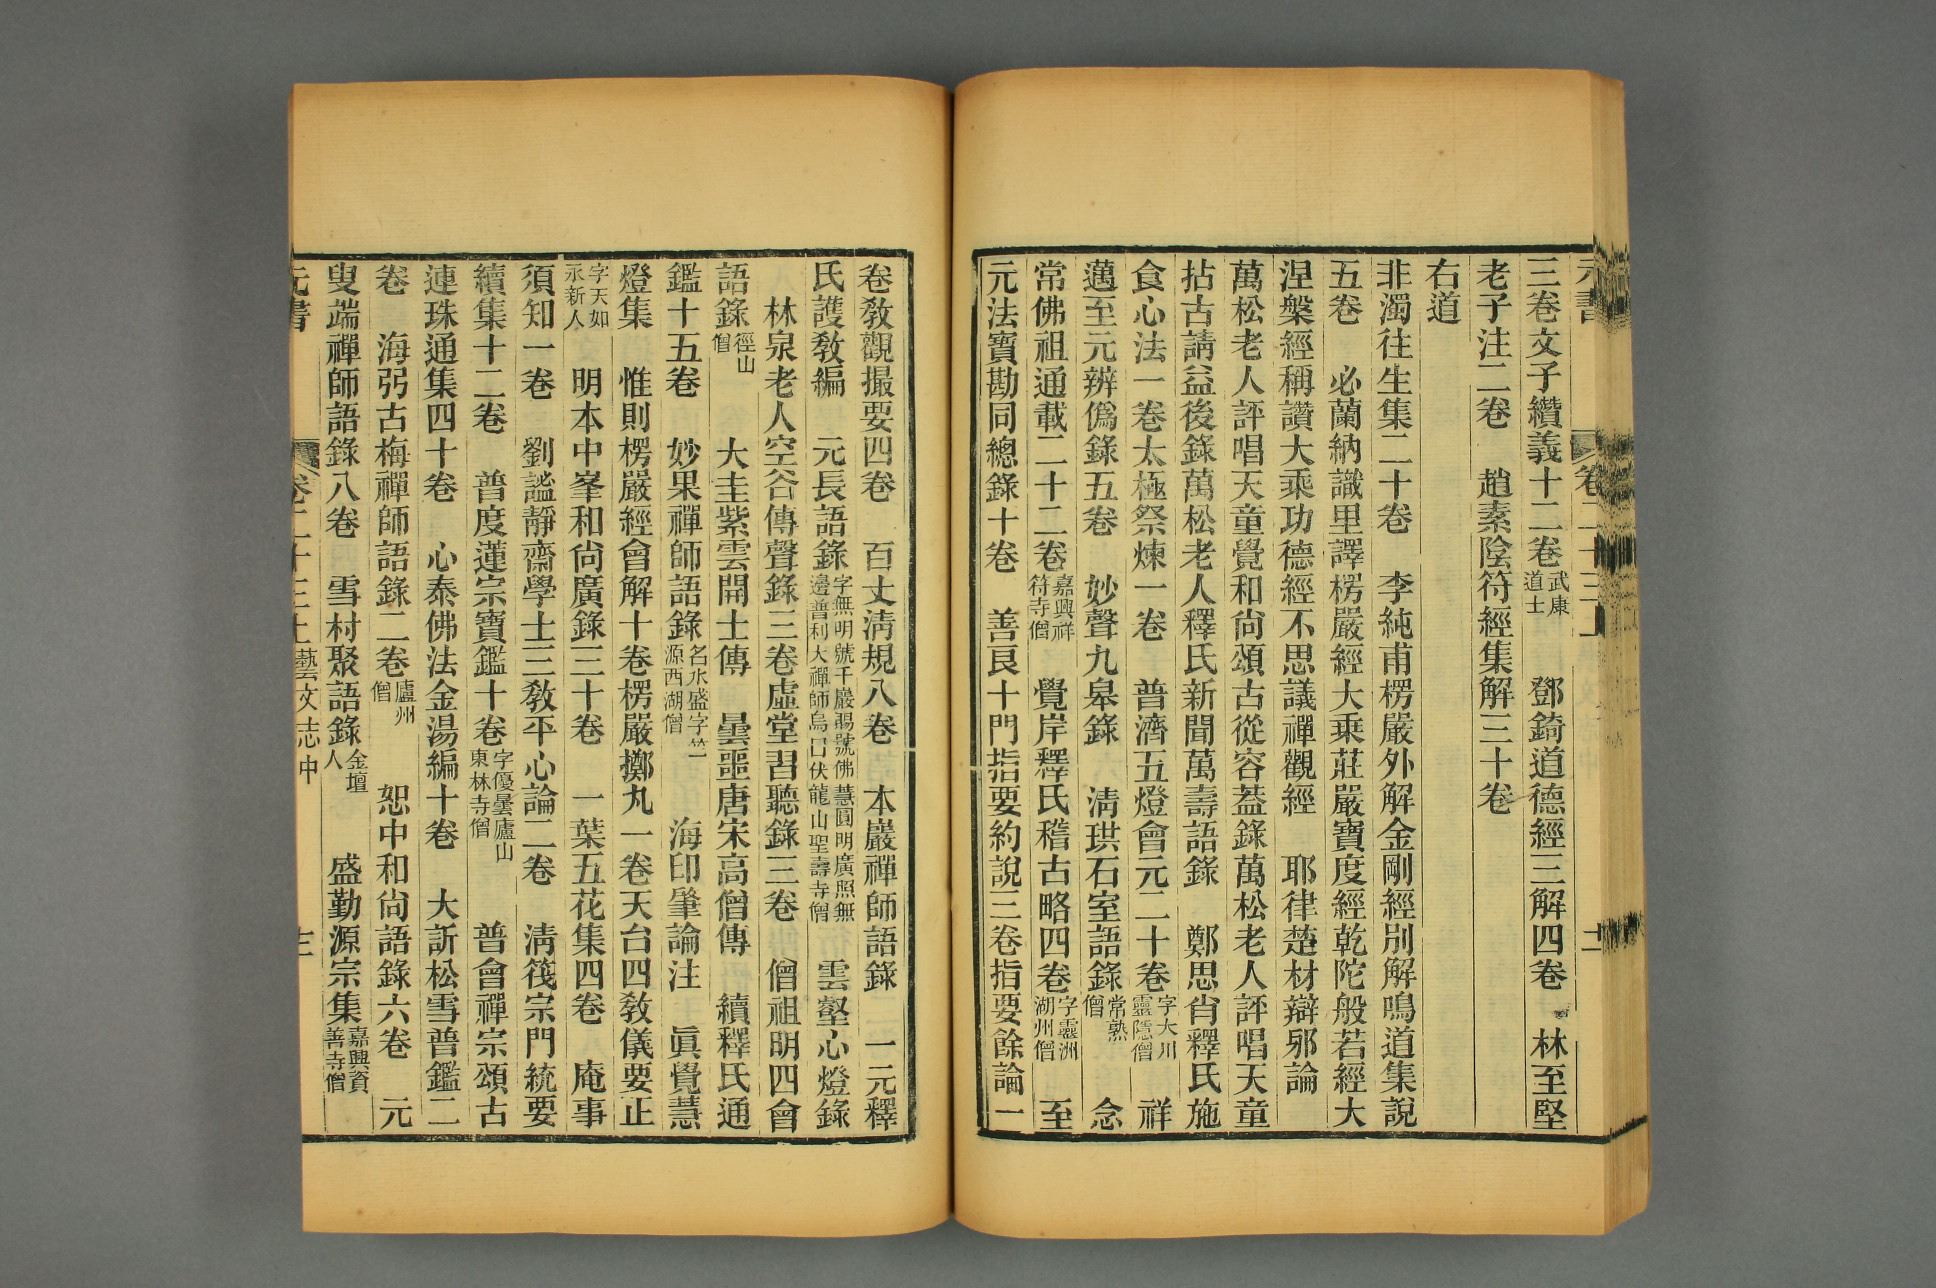 元書 卷二十三上 二
三卷文子纘義十二卷武康道士 鄧錡道德經三解四卷 林至堅
老子注二卷 趙素陰符經集解三十卷
右道
非濁往生集二十卷 李純甫楞嚴外解金剛經別解鳴道集說
五卷 必蘭納識里譯楞嚴經大乘莊嚴寶度經乾陀般若經大
涅槃經稱讚大乘功德經不思議禪觀經 耶律楚材辯邪論
萬松老人評唱天童覺和尙頌古從容葢錄萬松老人評唱天童
拈古請益後錄萬松老人釋氏新聞萬壽語錄 鄭思肖釋氏施
食心法一卷太極祭煉一卷 普濟五燈會元二十卷字大川靈隱僧 祥
邁至元辨僞錄五卷 妙聲九臯錄 淸珙石室語錄常熟僧 念
常佛祖通載二十二卷嘉興祥符寺僧 覺岸釋氏稽古略四卷字靈洲湖州僧 至
元法寶勘同總錄十卷 善良十門指要約說三卷指要餘論一
卷敎觀撮要四卷 百丈淸規八卷 本巖禪師語錄 一元釋
氏護敎編 元長語錄字無明號千巖賜號佛慧圓明廣照無邊普利大禪師烏口伏龍山聖壽寺僧 雲壑心燈錄
林泉老人空谷傳聲錄三卷虛堂習聽錄三卷 僧祖明四會
語錄徑山僧 大圭紫雲開士傳 曇噩唐宋高僧傳 續釋氏通
鑑十五卷 妙果禪師語錄名水盛字竺源西湖僧 海印肇論注 眞覺慧
燈集 惟則楞嚴經會解十卷楞嚴擲丸一卷天台四敎儀要正
字天如永新人 明本中峯和尙廣錄三十卷 一葉五花集四卷 庵事
須知一卷 劉謐靜齋學士三敎平心論二卷 淸筏宗門統要
續集十二卷 普度蓮宗寶鑑十卷字優曇廬山東林寺僧 普會禪宗頌古
連珠通集四十卷 心泰佛法金湯編十卷 大訢松雪普鑑二
卷 海弜古梅禪師語錄二卷廬州僧 恕中和尙語錄六卷 元
叟端禪師語錄八卷 雪村聚語錄金壇人 盛勤源宗集嘉興資善寺僧
元書 卷二十三上藝文志中 三